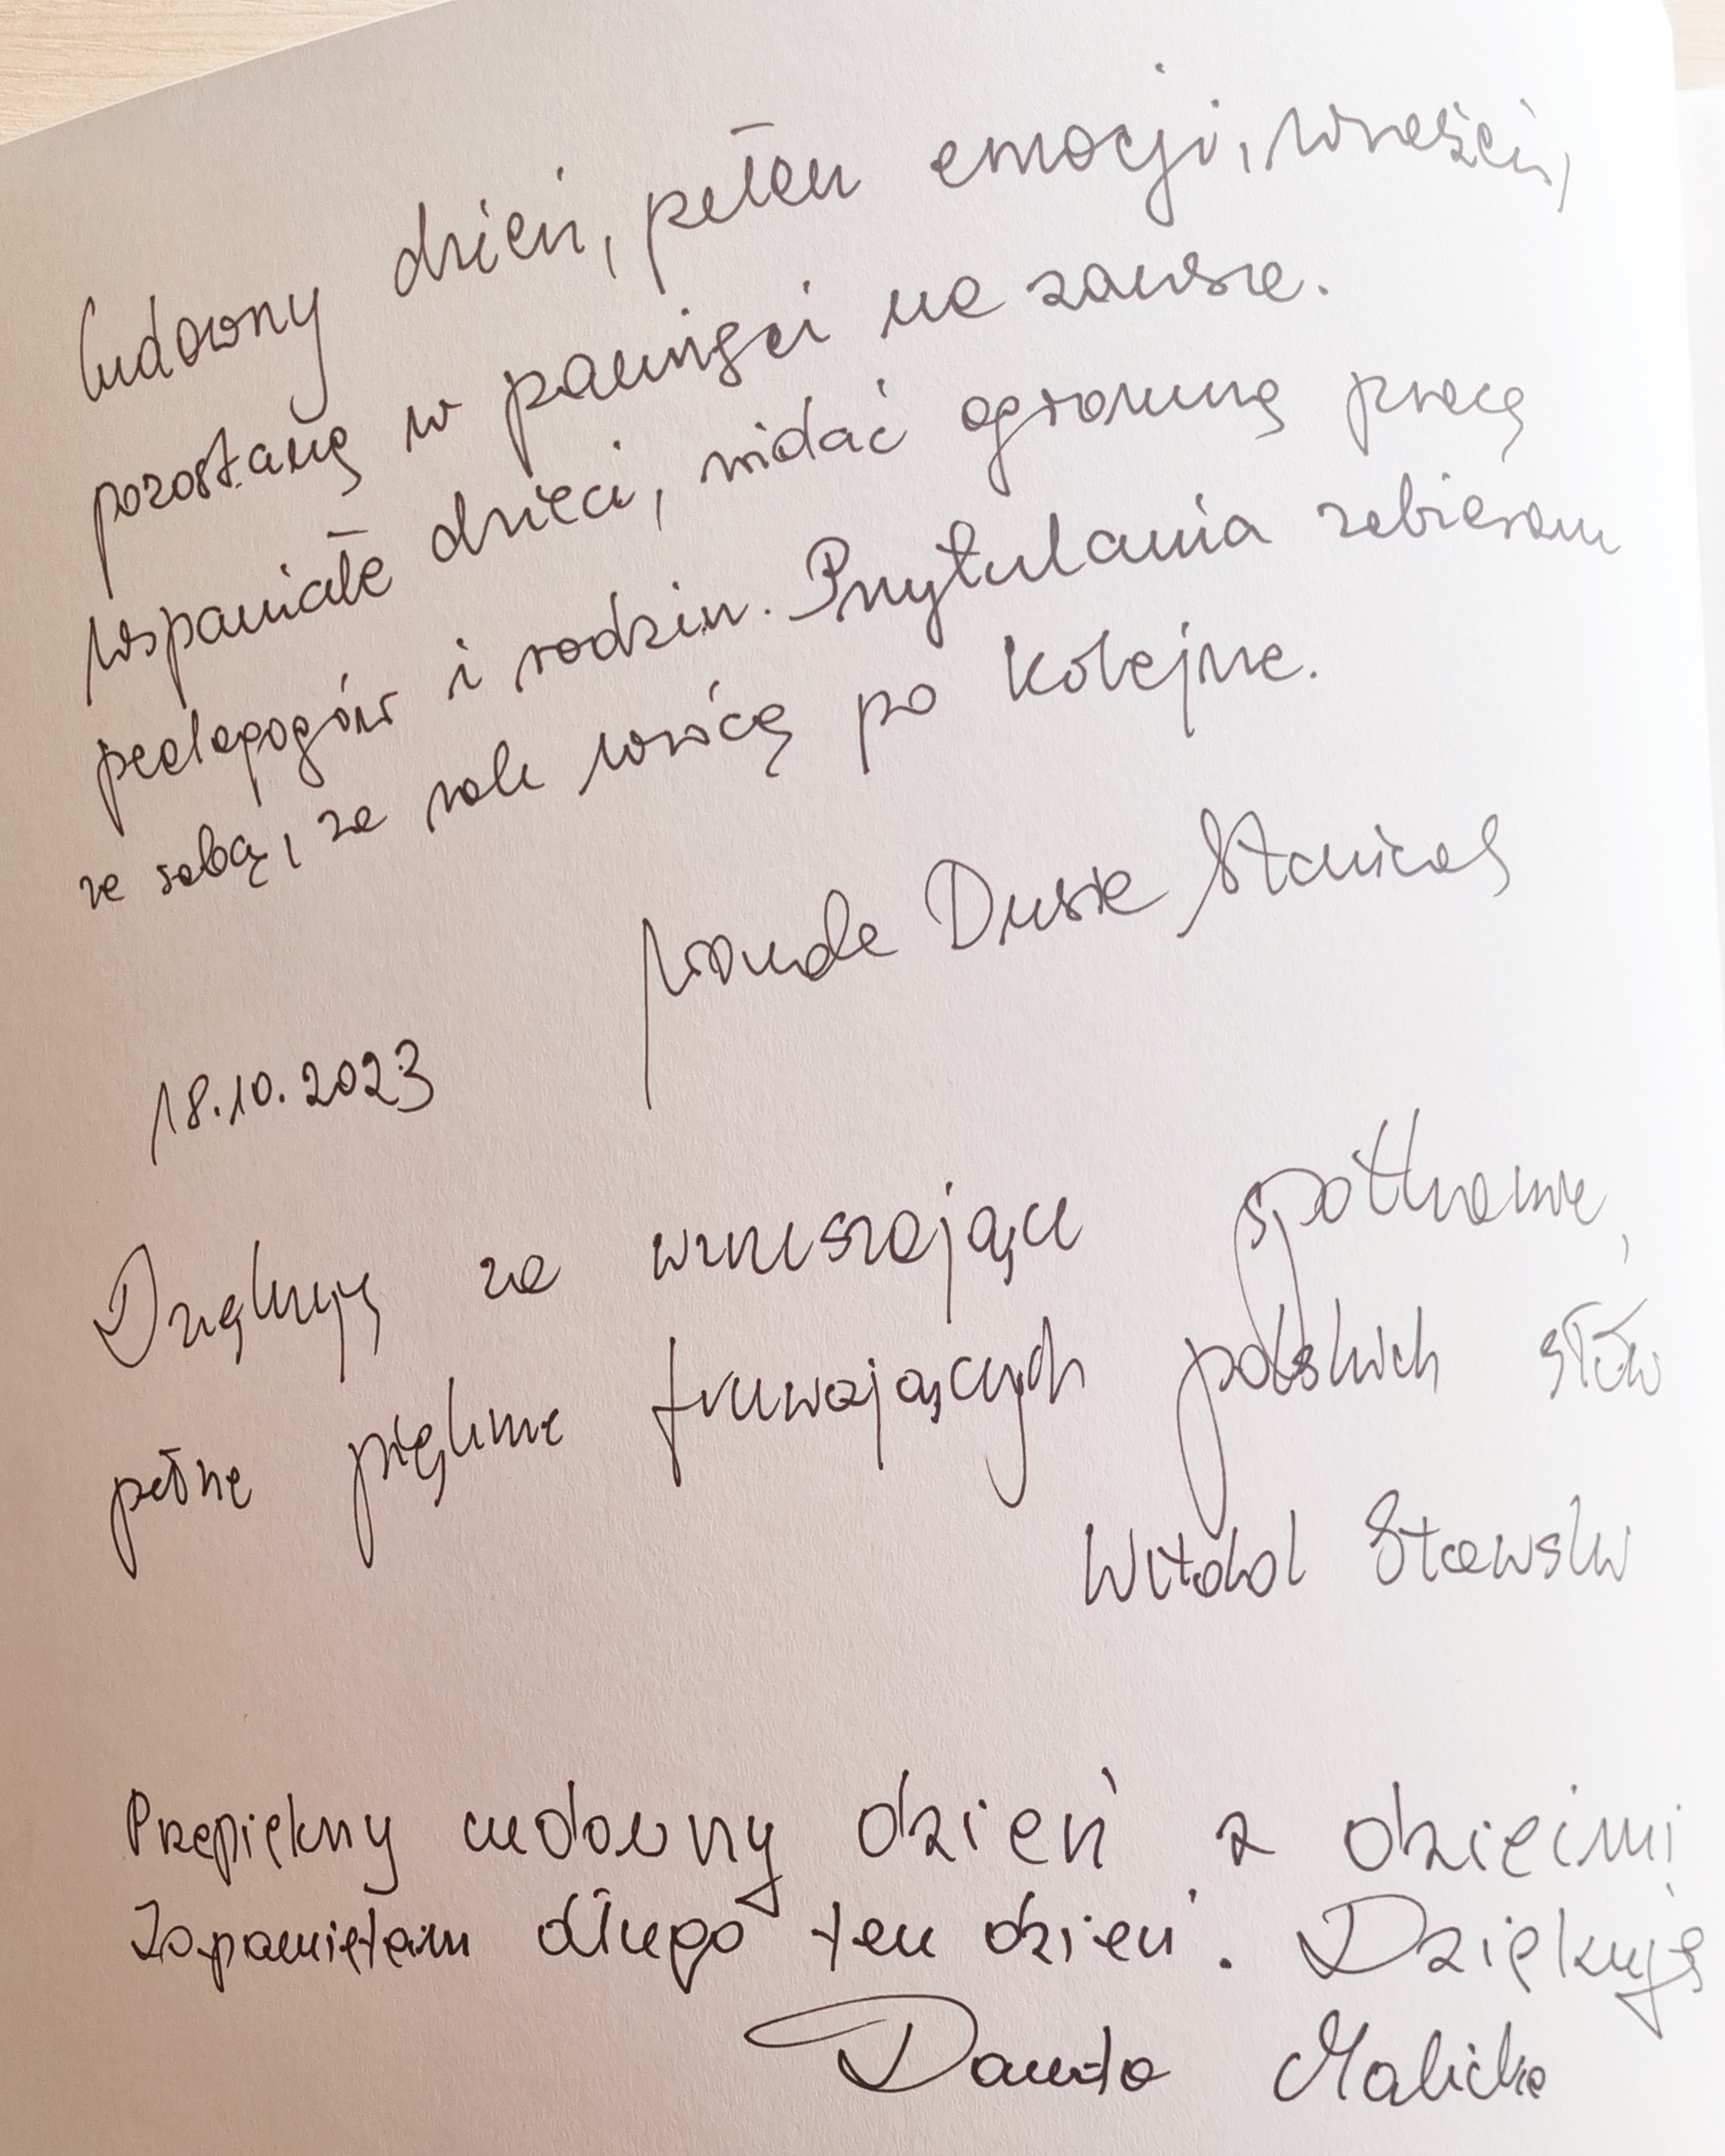 Cudowny dzień, pełen emocji, wrażeń,
pozostaną w pamięci na zawsze.
Wspaniałe dzieci, widać ogromną pracę
pedagogów i rodzin. Przytulania zabieram
ze sobą, za rok wrócę po kolejne.
Wanda Dusia Stanicas
18.10.2023
Dziękuję za wzruszające spotkanie,
pełne pięknie fruwających polskich słów
Witold Stawski
Przepiękny cudowny dzień z dziećmi
Zapamiętam długo ten dzień. Dziękuję
Danuta Malicka